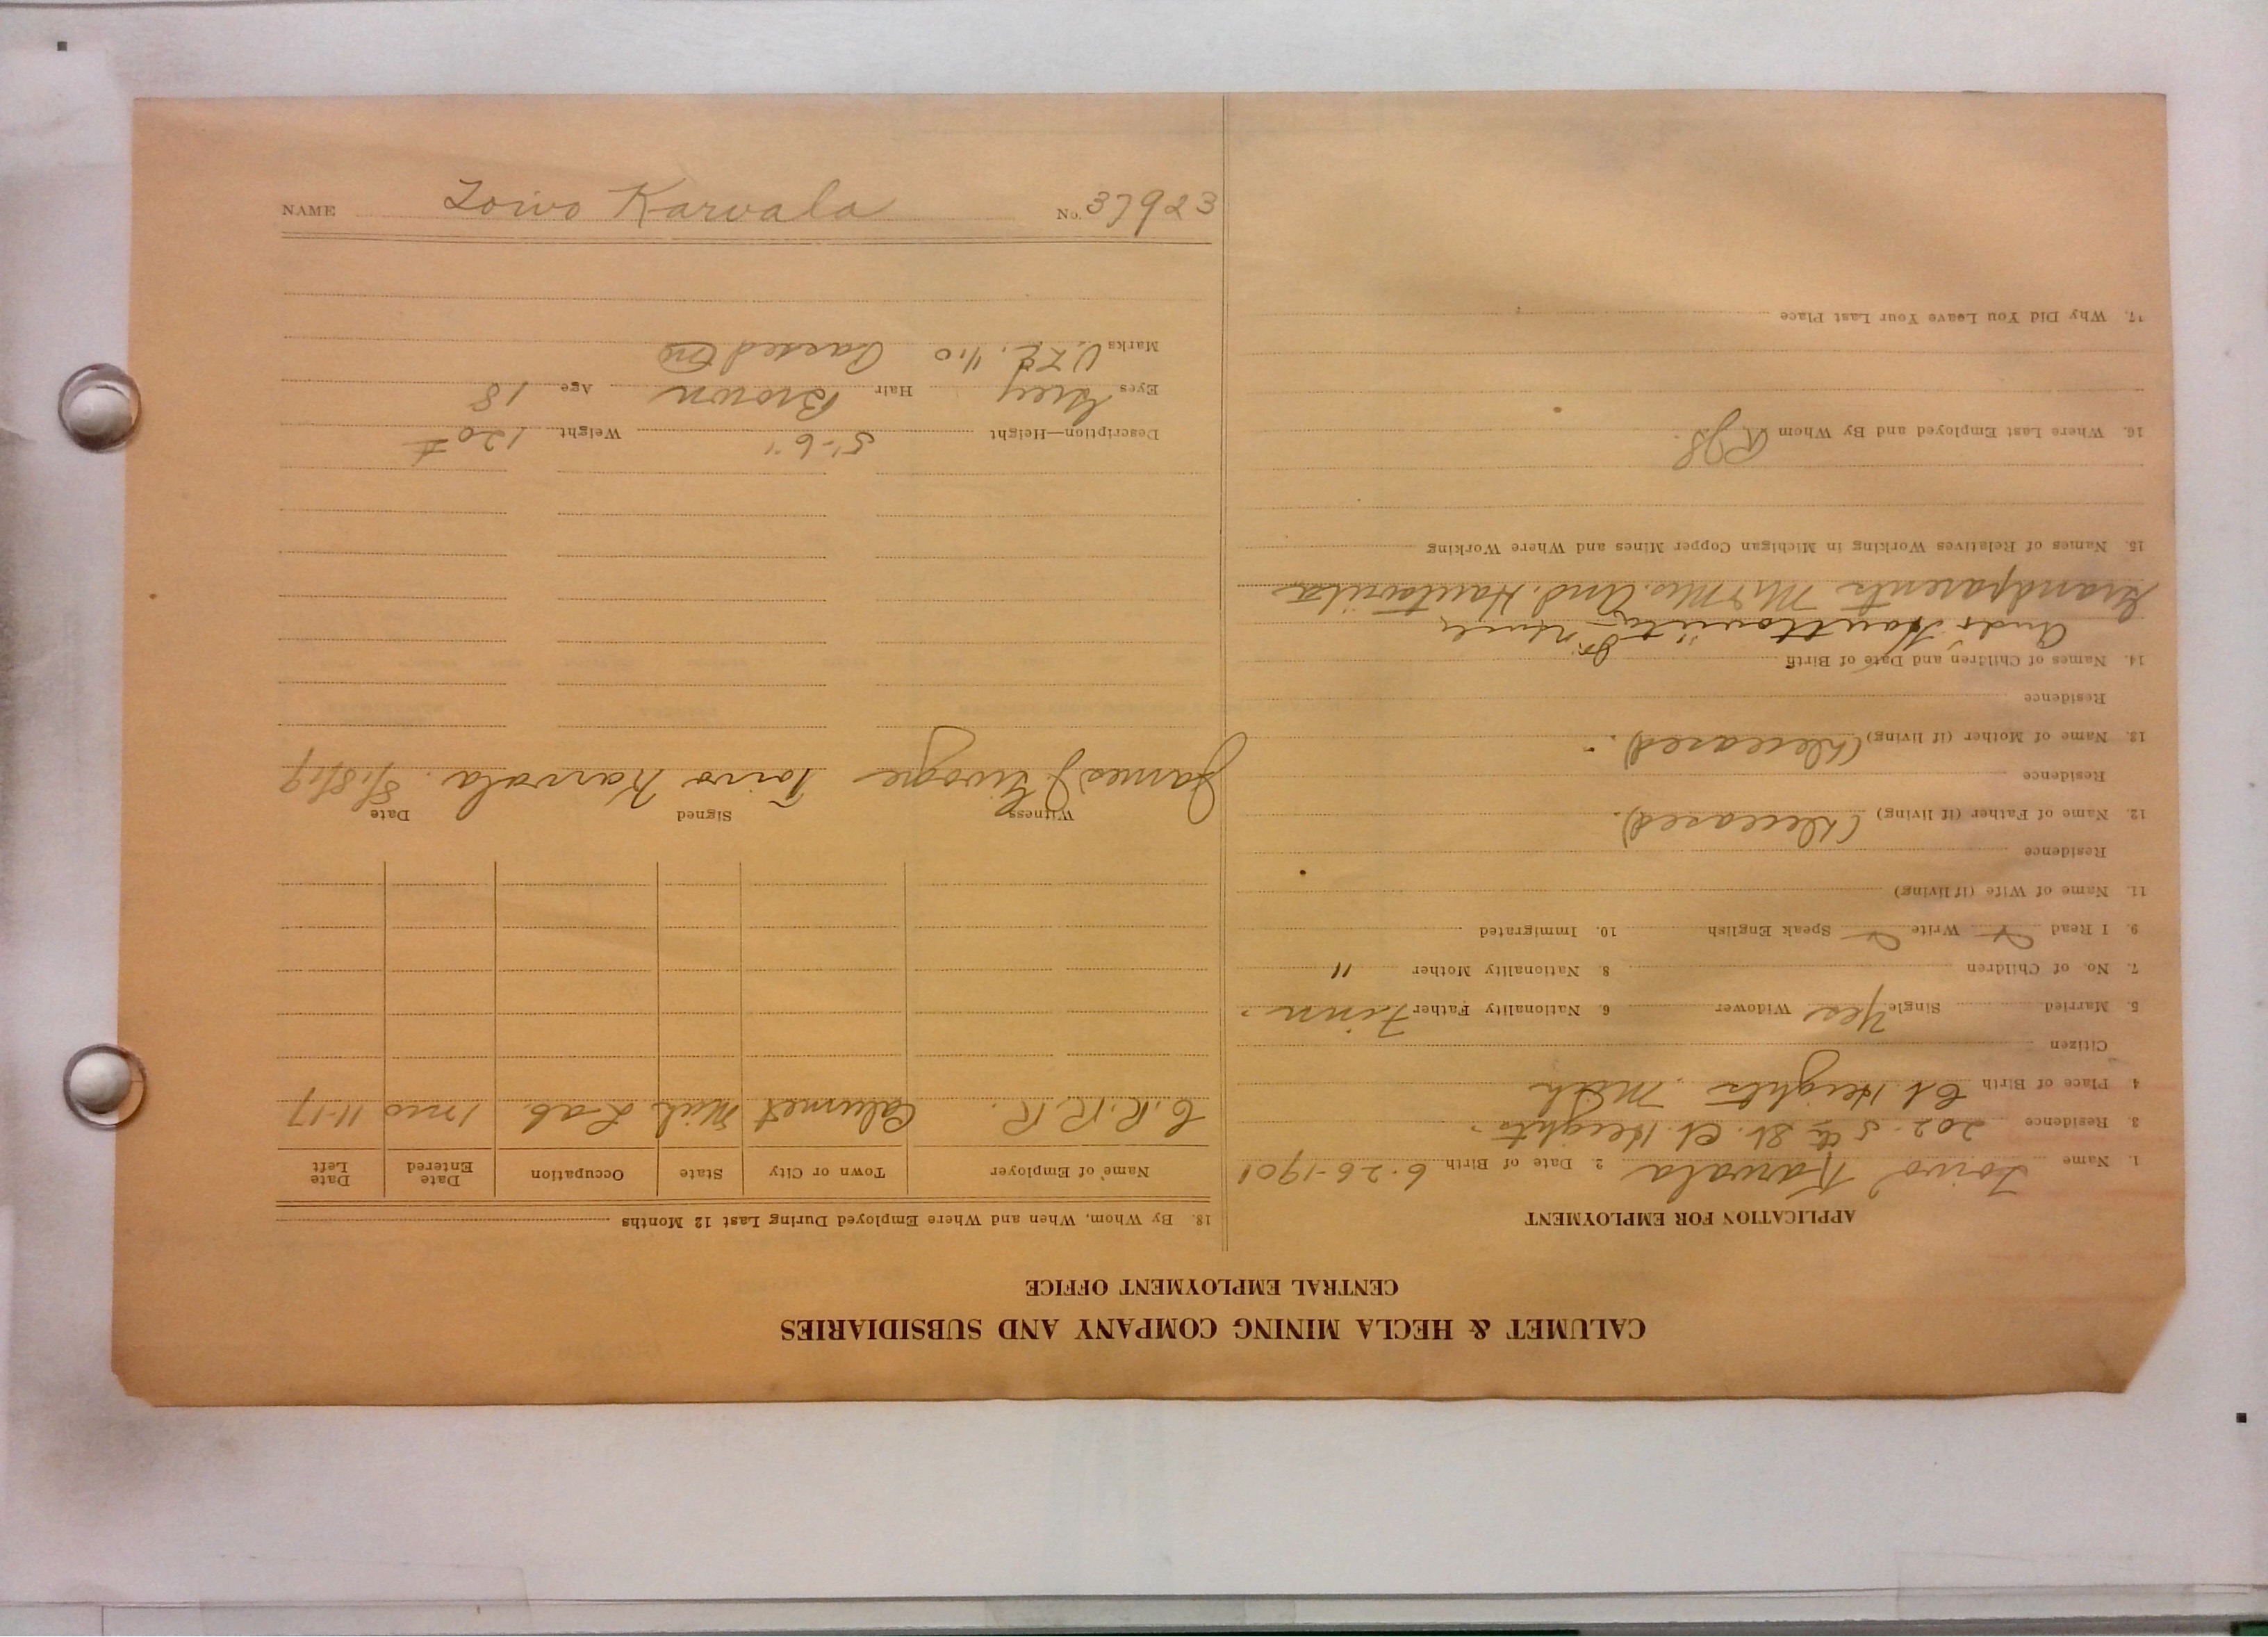 CALUMET & HECLA MINING COMPANY AND SUBSIDIARIES
CENTRAL EMPLOYMENT OFFICE
APPLICATION FOR EMPLOYMENT
1. Name Toivo Karvala 2. Date of Birth 6-26-1901
3 Residence 202-5th St. Cl. Heights.
4 Place of Birth Cl. Heights. Mich
Citizen
5. Married Single Yes Widower 6. Nationality Father Finn.
7. No. of Children 8. Nationality Mother "
9. I Read Write Speak English 10. Immigrated
11. Name of Wife (if living)
Residence
12. Name of Father (if living) (Deceased).
Residence
13. Name of Mother (if living) (Deceased).
Residence
14. Names of Children and Date of Birth
Jr.
Grandparents Mr & Mrs. And.
15. Names of Relatives Working in Michigan Copper Mines and Where Working
16. Where Last Employed and By Whom
17. Why Did You Leave Your Last Place
18. By Whom, When and Where Employed During Last 12 Months
Name of Employer Town or City State Occupation Date Entered Date Left
C.R.R.R. Calumet Mich Lab. 1 mo 11-17
Witness Signed Date
James J Toivo Karvala. 8/18/19
Description—Height 5'-6" Weight 120 #
Eyes Grey Hair Brown Age 18
Marks Passed
NAME Toivo Karvala No. 37923